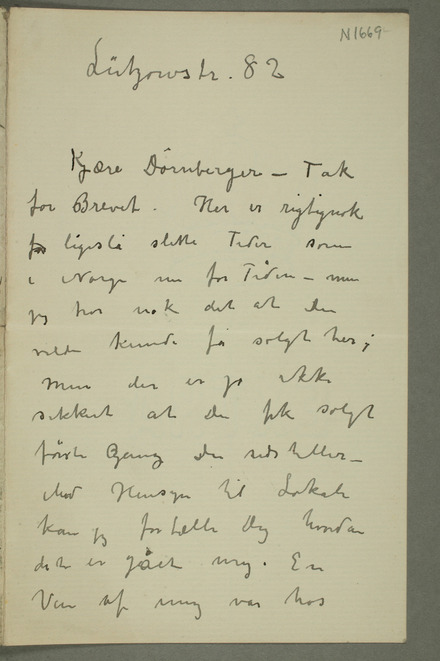 N1669-
Lützowstr. 82
Kjære Dørnberger – Tak
for Brevet. Her er rigtignok
ligeså slette Tider som
i Norge nu for Tiden – men
jeg tror nok det at Du
vilde kunde få solgt her;
men der er jo ikke
sikkert at Du fik solgt
förste Gang Du udstiller –
Med Hensyn til Lokale
kan jeg fortælle Dig hvordan
det er gået mig. En
Ven af mig var hos